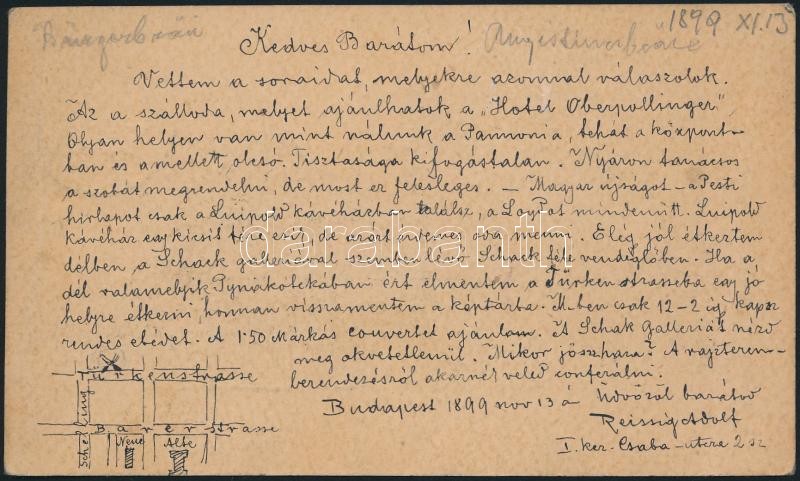 Bürgerbräu
1899 XI.15
Kedves Barátom!
Vettem a soraidat, melyekre azonnal válaszolok.
Az a szálloda, melyet ajánlhatok a „Hotel Oberpollinger”
Olyan helyen van mint nálunk a Pannonia, tehát a központ-
ban és a mellett olcsó. Tisztasága kifogástalan. Nyáron tanácsos
a szobát megrendelni, de most ez felesleges. – Magyar újságot – a Pesti
hirlapot csak a Luipold kávéházban találsz, a Log Pot mindenütt. Luipold
kávéház egy kicsit félre esik, de azért érdemes oda menni. Elég jól étkeztem
délben, a Schack galleriával szemben lévő Schack féle vendéglőben. Ha a
dél valamelyik Pynakotékában ért elmentem a Türkenstrasseba egy jó
helyre étkezni, honnan visszamentem a képtárba. M-ben csak 12–2 ig kapsz
rendes ebédet. A 1·50 Márkás couvertet ajánlom. A Schak Galleriát nézd
meg okvetetlenül. Mikor jössz haza? A rajzterem-
berendezésről akarnék veled conferálni.
Üdvözöl barátod
Budapest 1899 nov 13 á
Reissig Adolf
I. ker. Csaba-utcza 2 sz
Türkenstrasse
Schelling
Barerstrasse
Neue Alte
darabanth